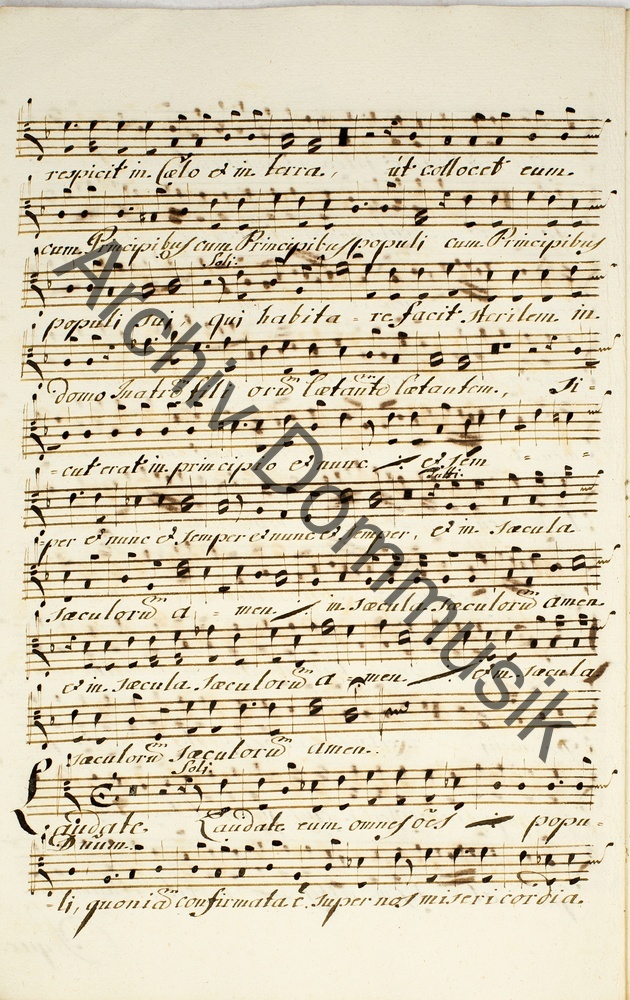 respicit in Cælo et in terra, ut collocet eum.
cum Principibus cum Principibus populi cum Principibus
Soli.
populi sui, qui habita - re facit sterilem in
domo Matrem filiorum lætante lætantem, Si -
- cut erat in principio et nunc ./. et sem - -
Tutti.
per et nunc et semper et nunc et semper, et in sæcula
sæculorum a - men ./. in sæcula sæculorum amen
et in sæcula sæculorum a - men ./. et in sæcula
sæculorum sæculorum amen.
Soli.
Laudate Laudate eum omnes o͠es ./. popu -
Dnum.
- li, quoniam confirmata ē super nos misericordia.
Archiv Dommusik